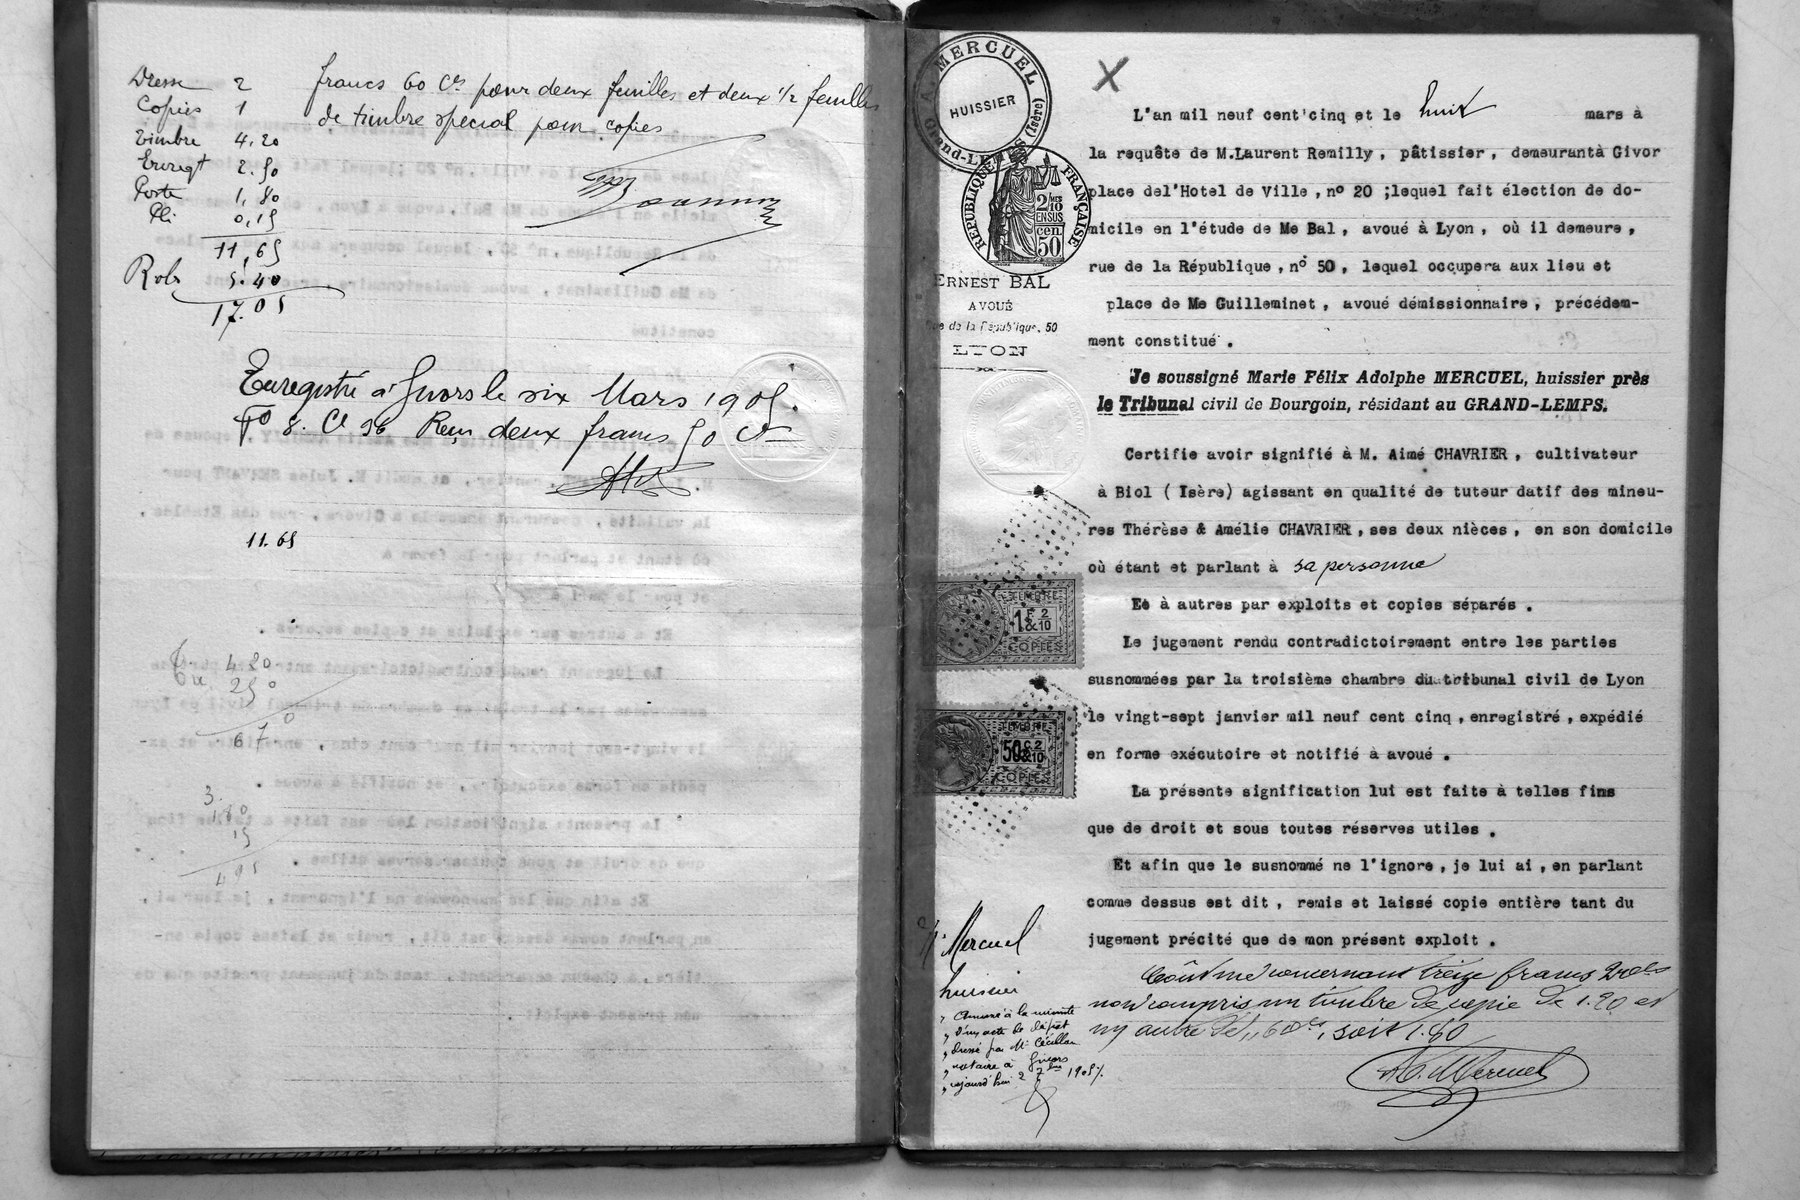 Dresse 2
Copies 1
Timbre 4.20
Enregt 2.50
Poste 1.80
Pli 0,15
11,65
Rob 5.40
17.05
francs 60 Cs pour deux feuilles et deux 1/2 feuilles
de timbre spécial pour copies
Enregistré à Givors le six Mars 1905.
Fo 8. Ce 96 Reçu deux francs 50 Ces
11.65
4.20
250
670
3.
180
15
495
A. MERCUEL
HUISSIER
Grand-LEMPS (Isère)
RÉPUBLIQUE FRANÇAISE
2/10
EN SUS
50 cen.
ERNEST BAL
AVOUÉ
Rue de la République, 50
LYON
X
L'an mil neuf cent'cinq et le huit mars à
la requête de M.Laurent Remilly, pâtissier, demeurantà Givor
place del'Hotel de Ville, nº 20 ;lequel fait élection de do-
micile en l'étude de Me Bal, avoué à Lyon, où il demeure,
rue de la République, nº 50, lequel occupera aux lieu et
place de Me Guilleminet, avoué démissionnaire, précédem-
ment constitué.
Je soussigné Marie Félix Adolphe MERCUEL, huissier près
le Tribunal civil de Bourgoin, résidant au GRAND-LEMPS.
Certifie avoir signifié à M. Aimé CHAVRIER, cultivateur
à Biol (Isère) agissant en qualité de tuteur datif des mineu-
res Thérèse & Amélie CHAVRIER, ses deux nièces, en son domicile
où étant et parlant à sa personne
Et à autres par exploits et copies séparés.
Le jugement rendu contradictoirement entre les parties
susnommées par la troisième chambre du tribunal civil de Lyon
le vingt-sept janvier mil neuf cent cinq, enregistré, expédié
en forme exécutoire et notifié à avoué.
La présente signification lui est faite à telles fins
que de droit et sous toutes réserves utiles.
Et afin que le susnommé ne l'ignore, je lui ai, en parlant
comme dessus est dit, remis et laissé copie entière tant du
jugement précité que de mon présent exploit.
Coût me concernant treize francs 20cs
non compris un timbre de copie de 1.20 et
un autre de ,,60cs, soit 1.80
A. Mercuel
TIMBRE
1F 2/10
COPIES
TIMBRE
50c 2/10
COPIES
Mercuel
huissier
Annexé à la minute
d'un acte de dépôt
dressé par Me
notaire à Givors
aujourd'hui 2 7bre 1905